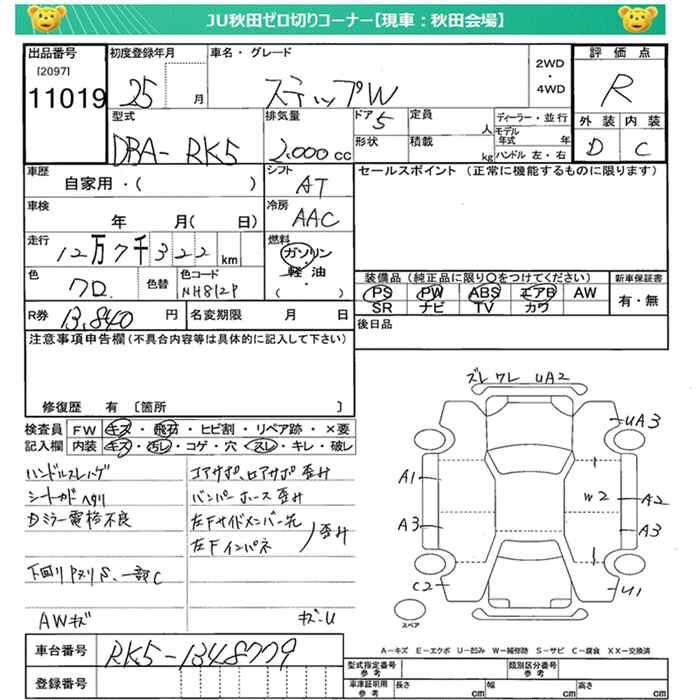 JU秋田ゼロ切りコーナー【現車：秋田会場】
出品番号 初度登録年月 車名・グレード 評価点
[2097]
11019 25 月 ステップW 2WD ・ 4WD R
型式 排気量 ドア 定員 ディーラー・並行 外装 内装
DBA-RK5 2,000 cc 5 人 モデル年式 年 D C
形状 積載 kg ハンドル 左・右
車歴 シフト セールスポイント (正常に機能するものに限ります)
自家用・( ) AT
車検 冷房
年 月( 日) AAC
走行 燃料
12万7千322 km ガソリン
軽油
( )
色 色替 色コード 装備品(純正品に限り○をつけてください) 新車保証書
クロ NH812P PS PW ABS エアB AW 有・無
SR ナビ TV カワ
R券 13,840 円 名変期限 月 日 後日品
注意事項申告欄(不具合内容等は具体的に記入して下さい)
修復歴 有 〔箇所 〕
検査員 FW キズ・飛石・ヒビ割・リペア跡・×要
記入欄 内装 キズ・汚レ・コゲ・穴・スレ・キレ・破レ
ハンドルスレ
コアサポ、ロアサポ歪み
バンパーホース歪み
Dミラー電格不良
左Fサイドメンバー先
左Fインパネ
歪み
下回り
一部C
AWキズ キズ・U
ズレ ワレ UA2
UA3
A1
W2
A2
A3
A3
C2
U1
スペア
A－キズ E－エクボ U－凹み W－補修跡 S－サビ C－腐食 XX－交換済
車台番号 RK5-1348779
登録番号
型式指定番号 参考 類別区分番号 参考
車庫証明用 参考 長さ cm 幅 cm 高さ cm